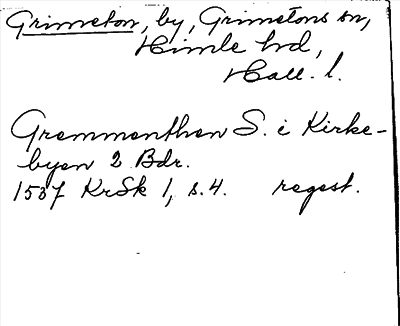 Grimeton, by, Grimetons sn,
Himle hd,
Hall. l.
Gremmenthen S. i Kirke-
byen 2 Bdr.
1537 KrSk 1, s. 4. regest.